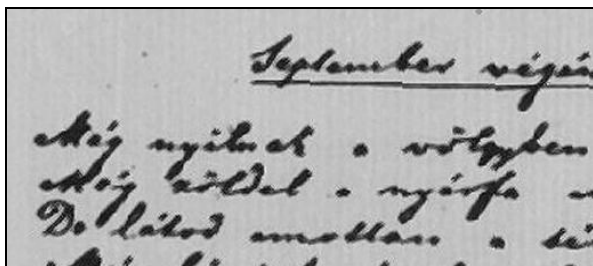 September végén
Még nyilnak a völgyben
Még zöldel a nyárfa
De látod amottan a
Még